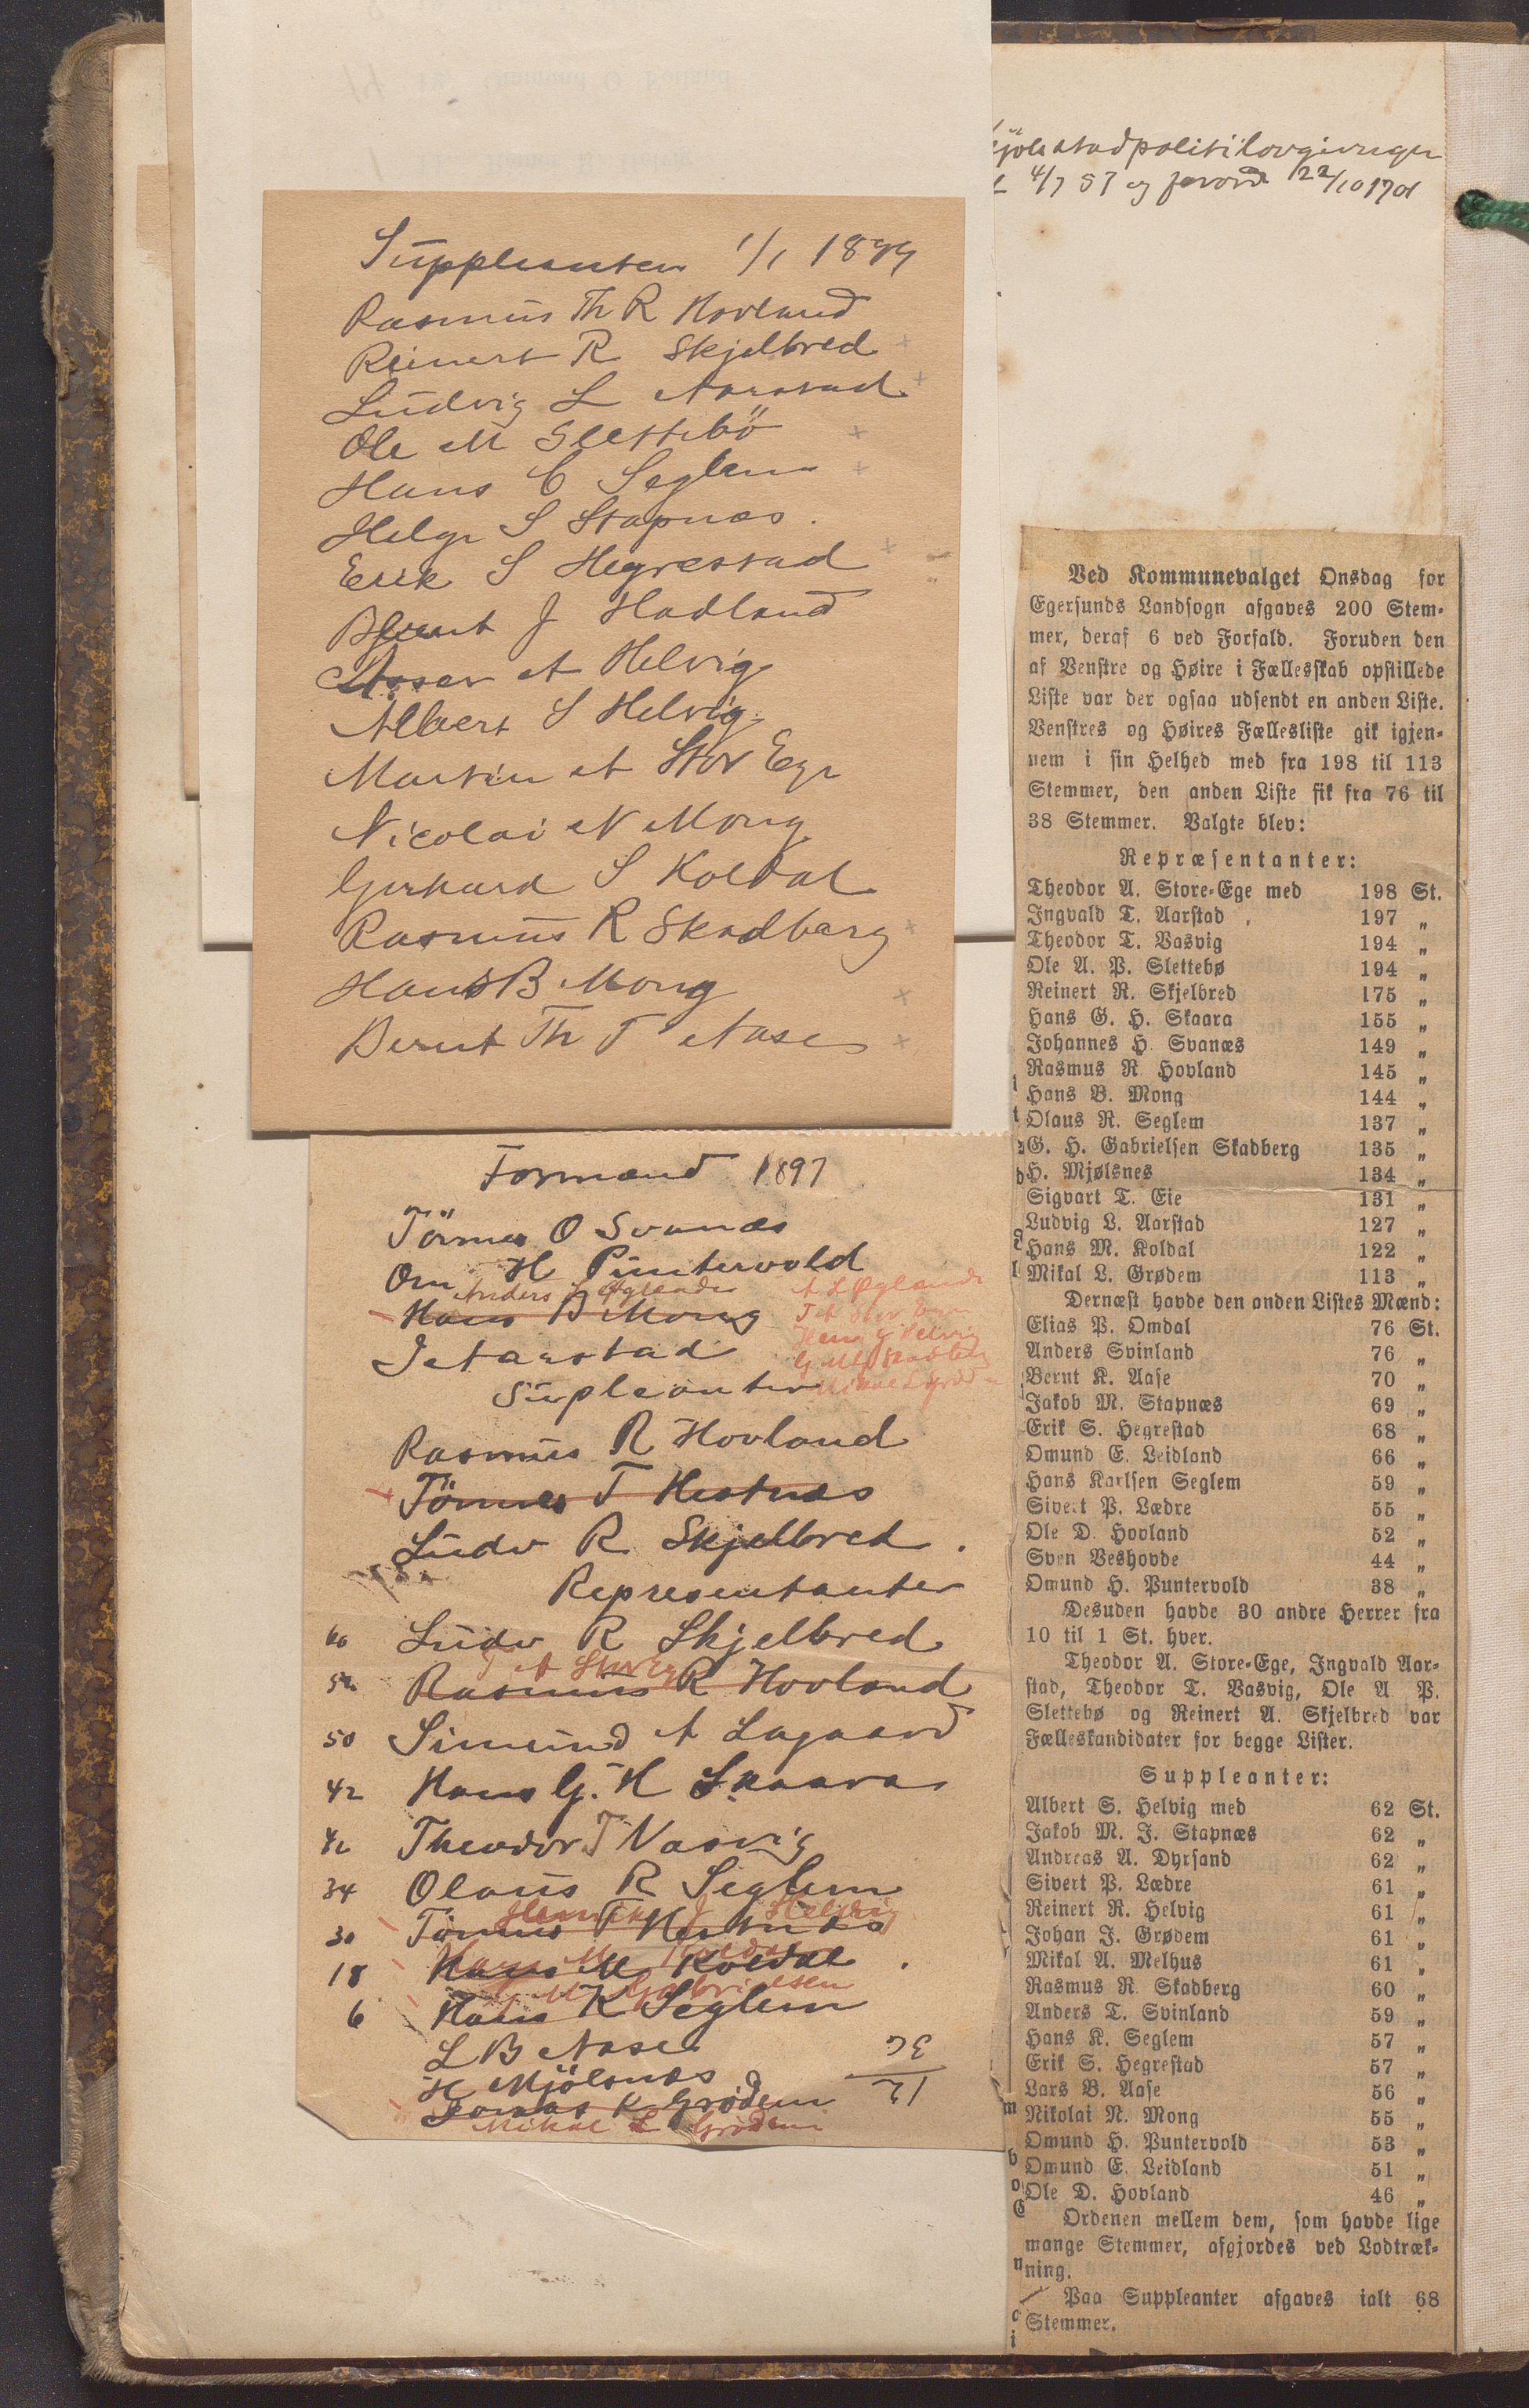 Suppleanter 1/1 1899
Rasmus Th R Hovland
Reinert R Skjelbred
Ludvig L Aarstad
Ole M Slettebö
Hans C Seglem
Helge S Stapnæs.
Erik S Hegrestad
Bernt J Hadland
Asser A Helvig
Albert S Helvig
Martin A Stor Ege
Nicolai N Mong
Gerhard S Koldal
Rasmus R Skadberg
Hans B Mong
Bernt Th T Aase
Formænd 1897
Tönnes O Svanæs
Om H Puntervold
Anders L Øglænd
Hans B Mong
I Aarstad
A L Øglænd
T A Stor Ege
Hen J Helvig
G M Skadberg
Mikal L Grødem
Supleanter
Rasmus R Hovland
Tönnes T Hestnæs
Ludv R Skjelbred.
Representanter
60 Ludv R Skjelbred
T A Stor Ege
Rasmus R Hovland
50 Simund A Lagaard
42 Hans G. H Skaara
Theodor T Vasvig
34 Olaus R Seglem
Henrik J Helvig
30 Tönnes T Hestnæs
Hans M Koldal
18 Hans M Koldal.
G M Gabrielsen
6 Hans K Seglem
L B Aase
H Mjölsnæs
Jonas K Grödem
Mikal L Grödem
36
12
politilovgivngen
4/7 57 og forord 22/10 1701
Ved Kommunevalget Onsdag for
Egersunds Landsogn afgaves 200 Stem-
mer, deraf 6 ved Forfald. Foruden den
af Venstre og Høire i Fællesskab opstillede
Liste var der ogsaa udsendt en anden Liste.
Venstres og Høires Fællesliste gik igjen-
nem i sin Helhed med fra 198 til 113
Stemmer, den anden Liste fik fra 76 til
38 Stemmer. Valgte blev:
Repræsentanter:
Theodor A. Store-Ege med 198 St.
Ingvald T. Aarstad 197 „
Theodor T. Vasvig 194 „
Ole A. P. Slettebø 194 „
Reinert R. Skjelbred 175 „
Hans G. H. Skaara 155 „
Johannes H. Svanæs 149 „
Rasmus R. Hovland 145 „
Hans B. Mong 144 „
Olaus R. Seglem 137 „
G. H. Gabrielsen Skadberg 135 „
H. Mjølsnes 134 „
Sigvart T. Eie 131 „
Ludvig L. Aarstad 127 „
Hans M. Koldal 122 „
Mikal L. Grødem 113 „
Dernæst havde den anden Listes Mænd:
Elias P. Omdal 76 St.
Anders Svinland 76 „
Bernt K. Aase 70 „
Jakob M. Stapnæs 69 „
Erik S. Hegrestad 68 „
Omund E. Leidland 66 „
Hans Karlsen Seglem 59 „
Sivert P. Lædre 55 „
Ole D. Hovland 52 „
Sven Veshovde 44 „
Omund H. Puntervold 38 „
Desuden havde 30 andre Herrer fra
10 til 1 St. hver.
Theodor A. Store-Ege, Ingvald Aar-
stad, Theodor T. Vasvig, Ole A P.
Slettebø og Reinert A. Skjelbred var
Fælleskandidater for begge Lister.
Suppleanter:
Albert S. Helvig med 62 St.
Jakob M. J. Stapnæs 62 „
Andreas A. Dyrsand 62 „
Sivert P. Lædre 61 „
Reinert R. Helvig 61 „
Johan J. Grødem 61 „
Mikal A. Melhus 61 „
Rasmus R. Skadberg 60 „
Anders T. Svinland 59 „
Hans K. Seglem 57 „
Erik S. Hegrestad 57 „
Lars B. Aase 56 „
Nikolai N. Mong 55 „
Omund H. Puntervold 53 „
Omund E. Leidland 51 „
Ole D. Hovland 46 „
Ordenen mellem dem, som havde lige
mange Stemmer, afgjordes ved Lodtræk-
ning.
Paa Suppleanter afgaves ialt 68
Stemmer.